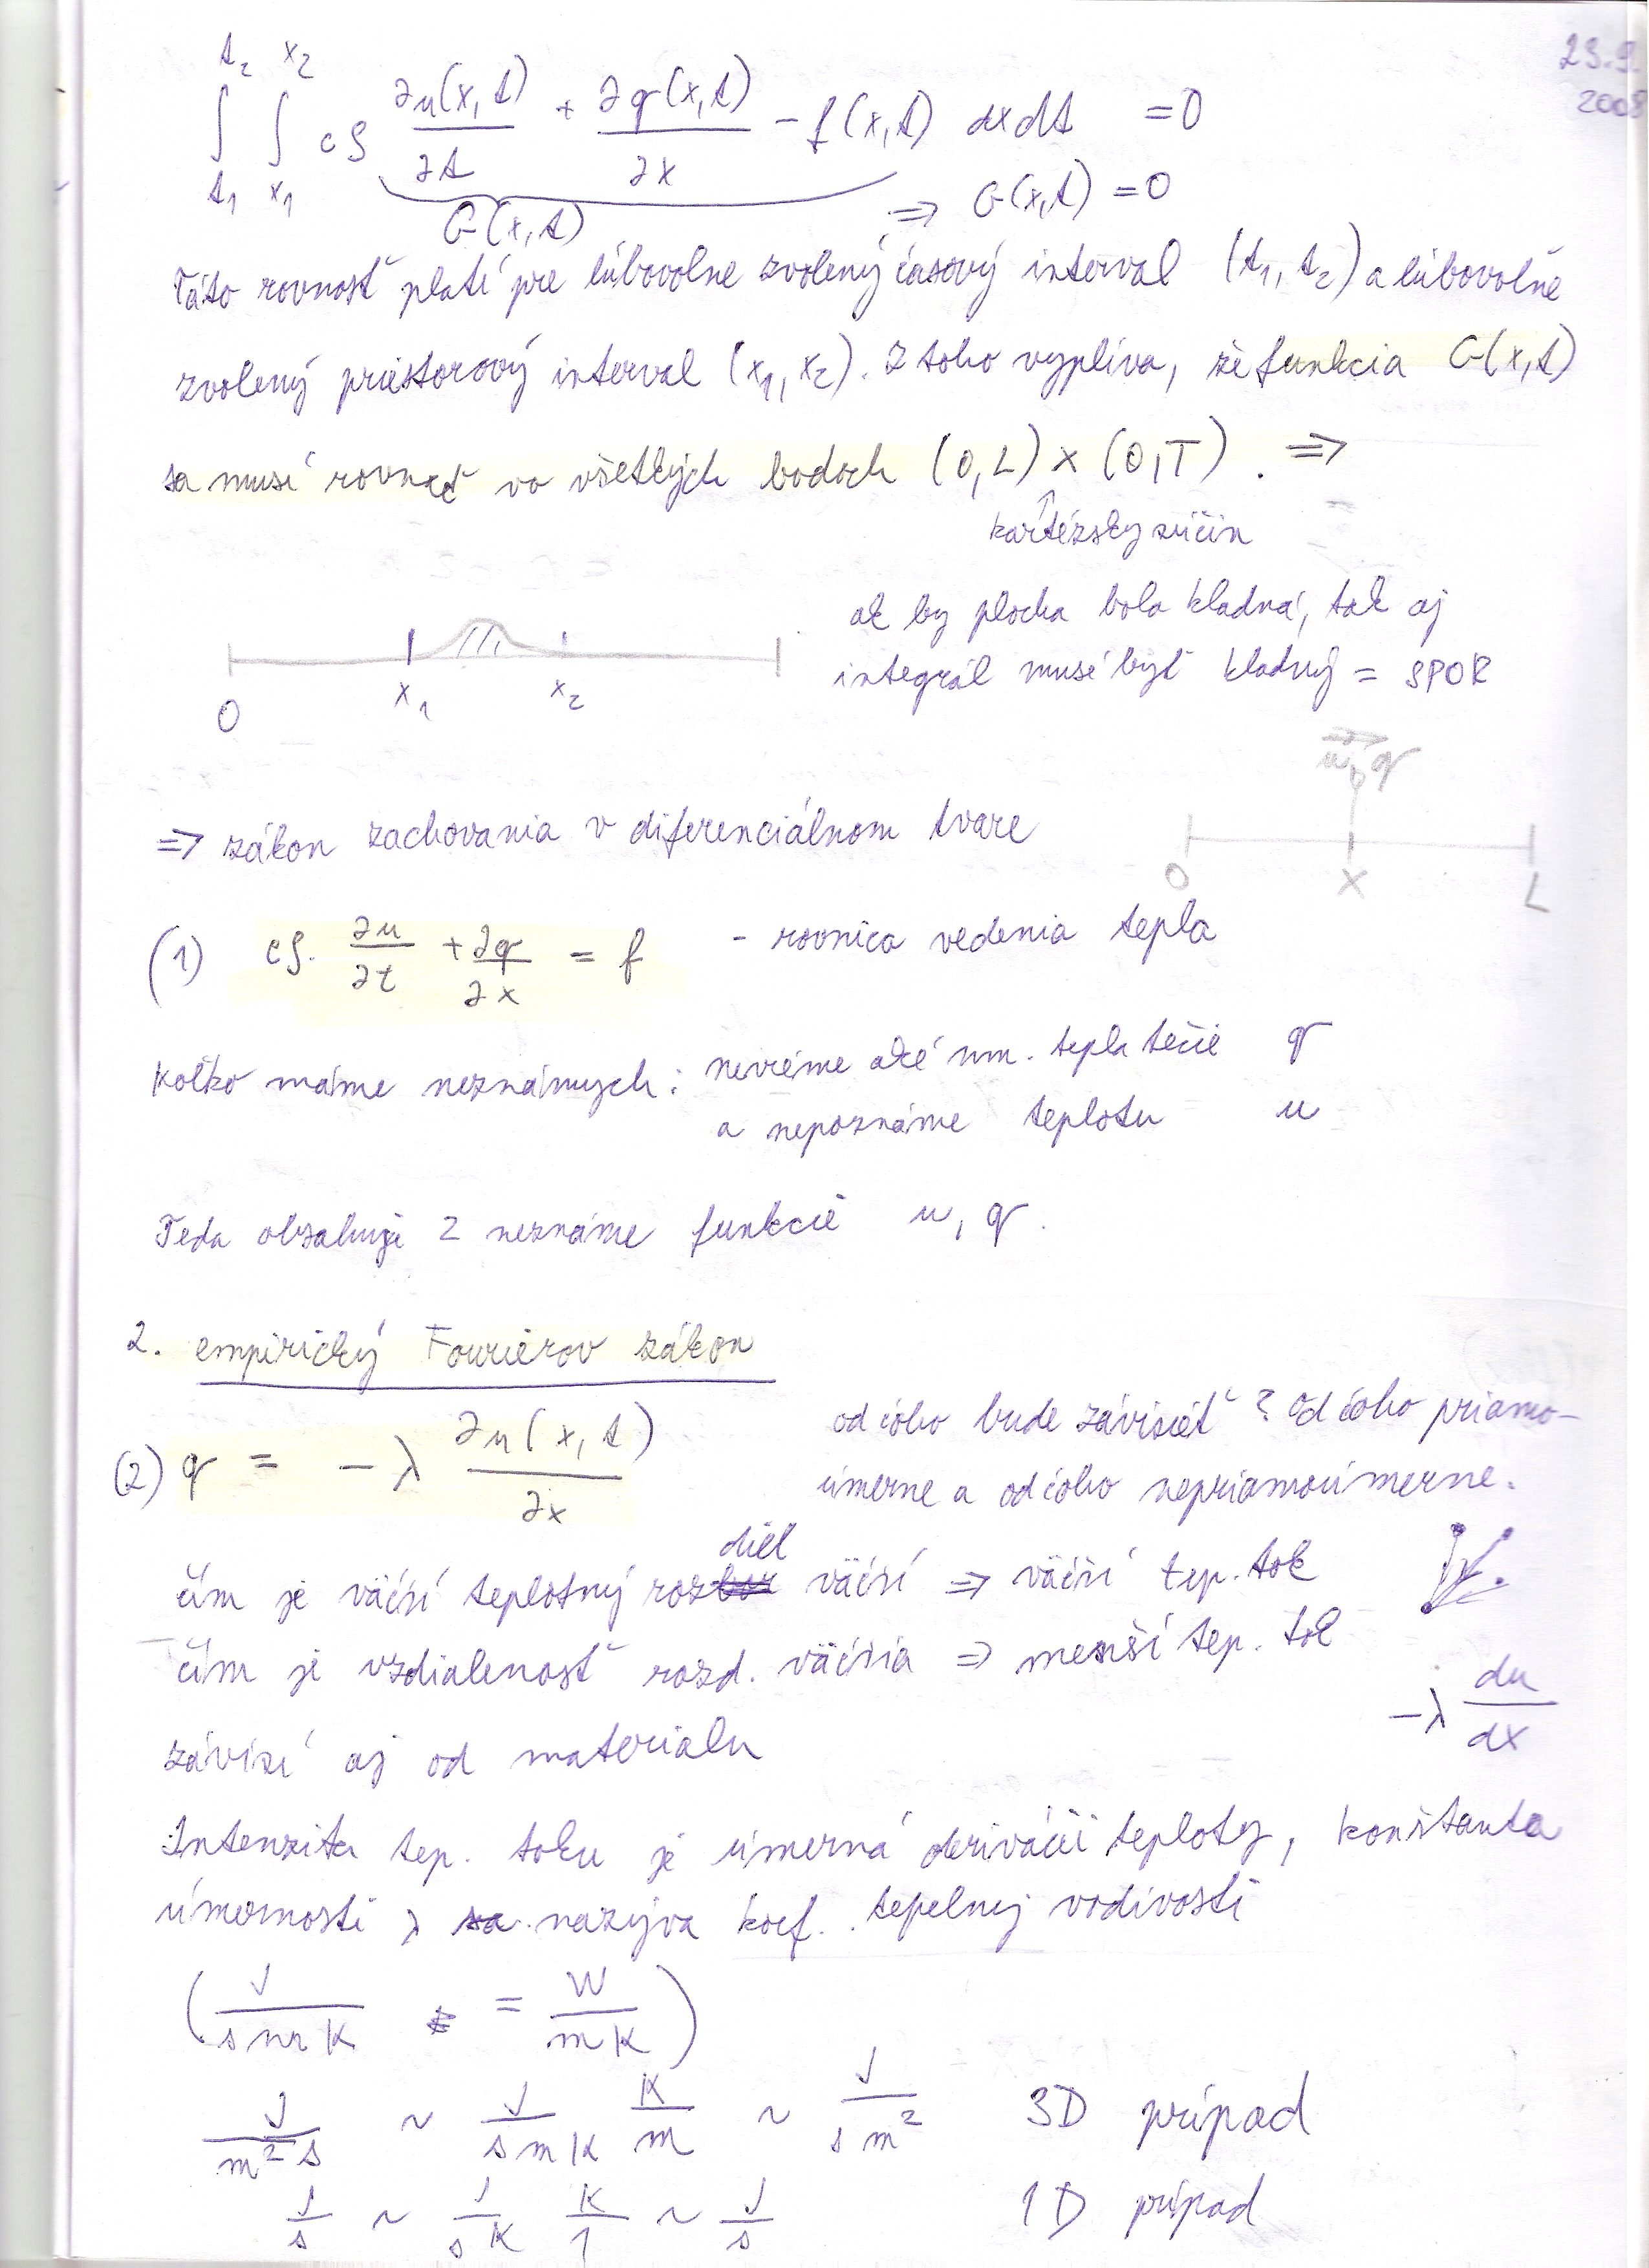 23.9.
2008
∫_{t₁}^{t₂} ∫_{x₁}^{x₂} cρ ∂u(x,t)/∂t + ∂q(x,t)/∂x − f(x,t) dxdt = 0
G(x,t) ⇒ G(x,t) = 0
Táto rovnosť platí pre ľúbovolne zvolený časový interval (t₁, t₂) a ľúbovolne
zvolený priestorový interval (x₁, x₂). Z toho vyplíva, že funkcia G(x,t)
sa musí rovnať vo všetkých bodoch (0,L) × (0,T). ⇒
↑
kartézsky súčin
ak by plocha bola kladná, tak aj
integrál musí byť kladný = SPOR
0 x₁ x₂
q
0 x L
⇒ zákon zachovania v diferenciálnom tvare
(1) cρ. ∂u/∂t + ∂q/∂x = f - rovnica vedenia tepla
Koľko máme neznámych: nevieme aké mn. tepla tečie q
a nepoznáme teplotu u
Teda obsahuje 2 neznáme funkcie u, q.
2. empirický Fourierov zákon
(2) q = − λ ∂u(x,t)/∂x
od čoho bude závisieť? Od čoho priamo-
úmerne a od čoho nepriamoúmerne.
čím je väčší teplotný rozdiel väčší ⇒ väčší tep. tok
čím je vzdialenosť rozd. väčšia ⇒ menší tep. tok
−λ du/dx
závisí aj od materialu
Intenzita tep. toku je úmerná derivácii teploty, konštanta
úmernosti λ sa nazýva koef. tepelnej vodivosti
(J/(s m K) = W/(m K))
J/(m² s) ~ J/(s m K) K/m ~ J/(s m²) 3D prípad
J/s ~ J/(s K) K/1 ~ J/s 1D prípad